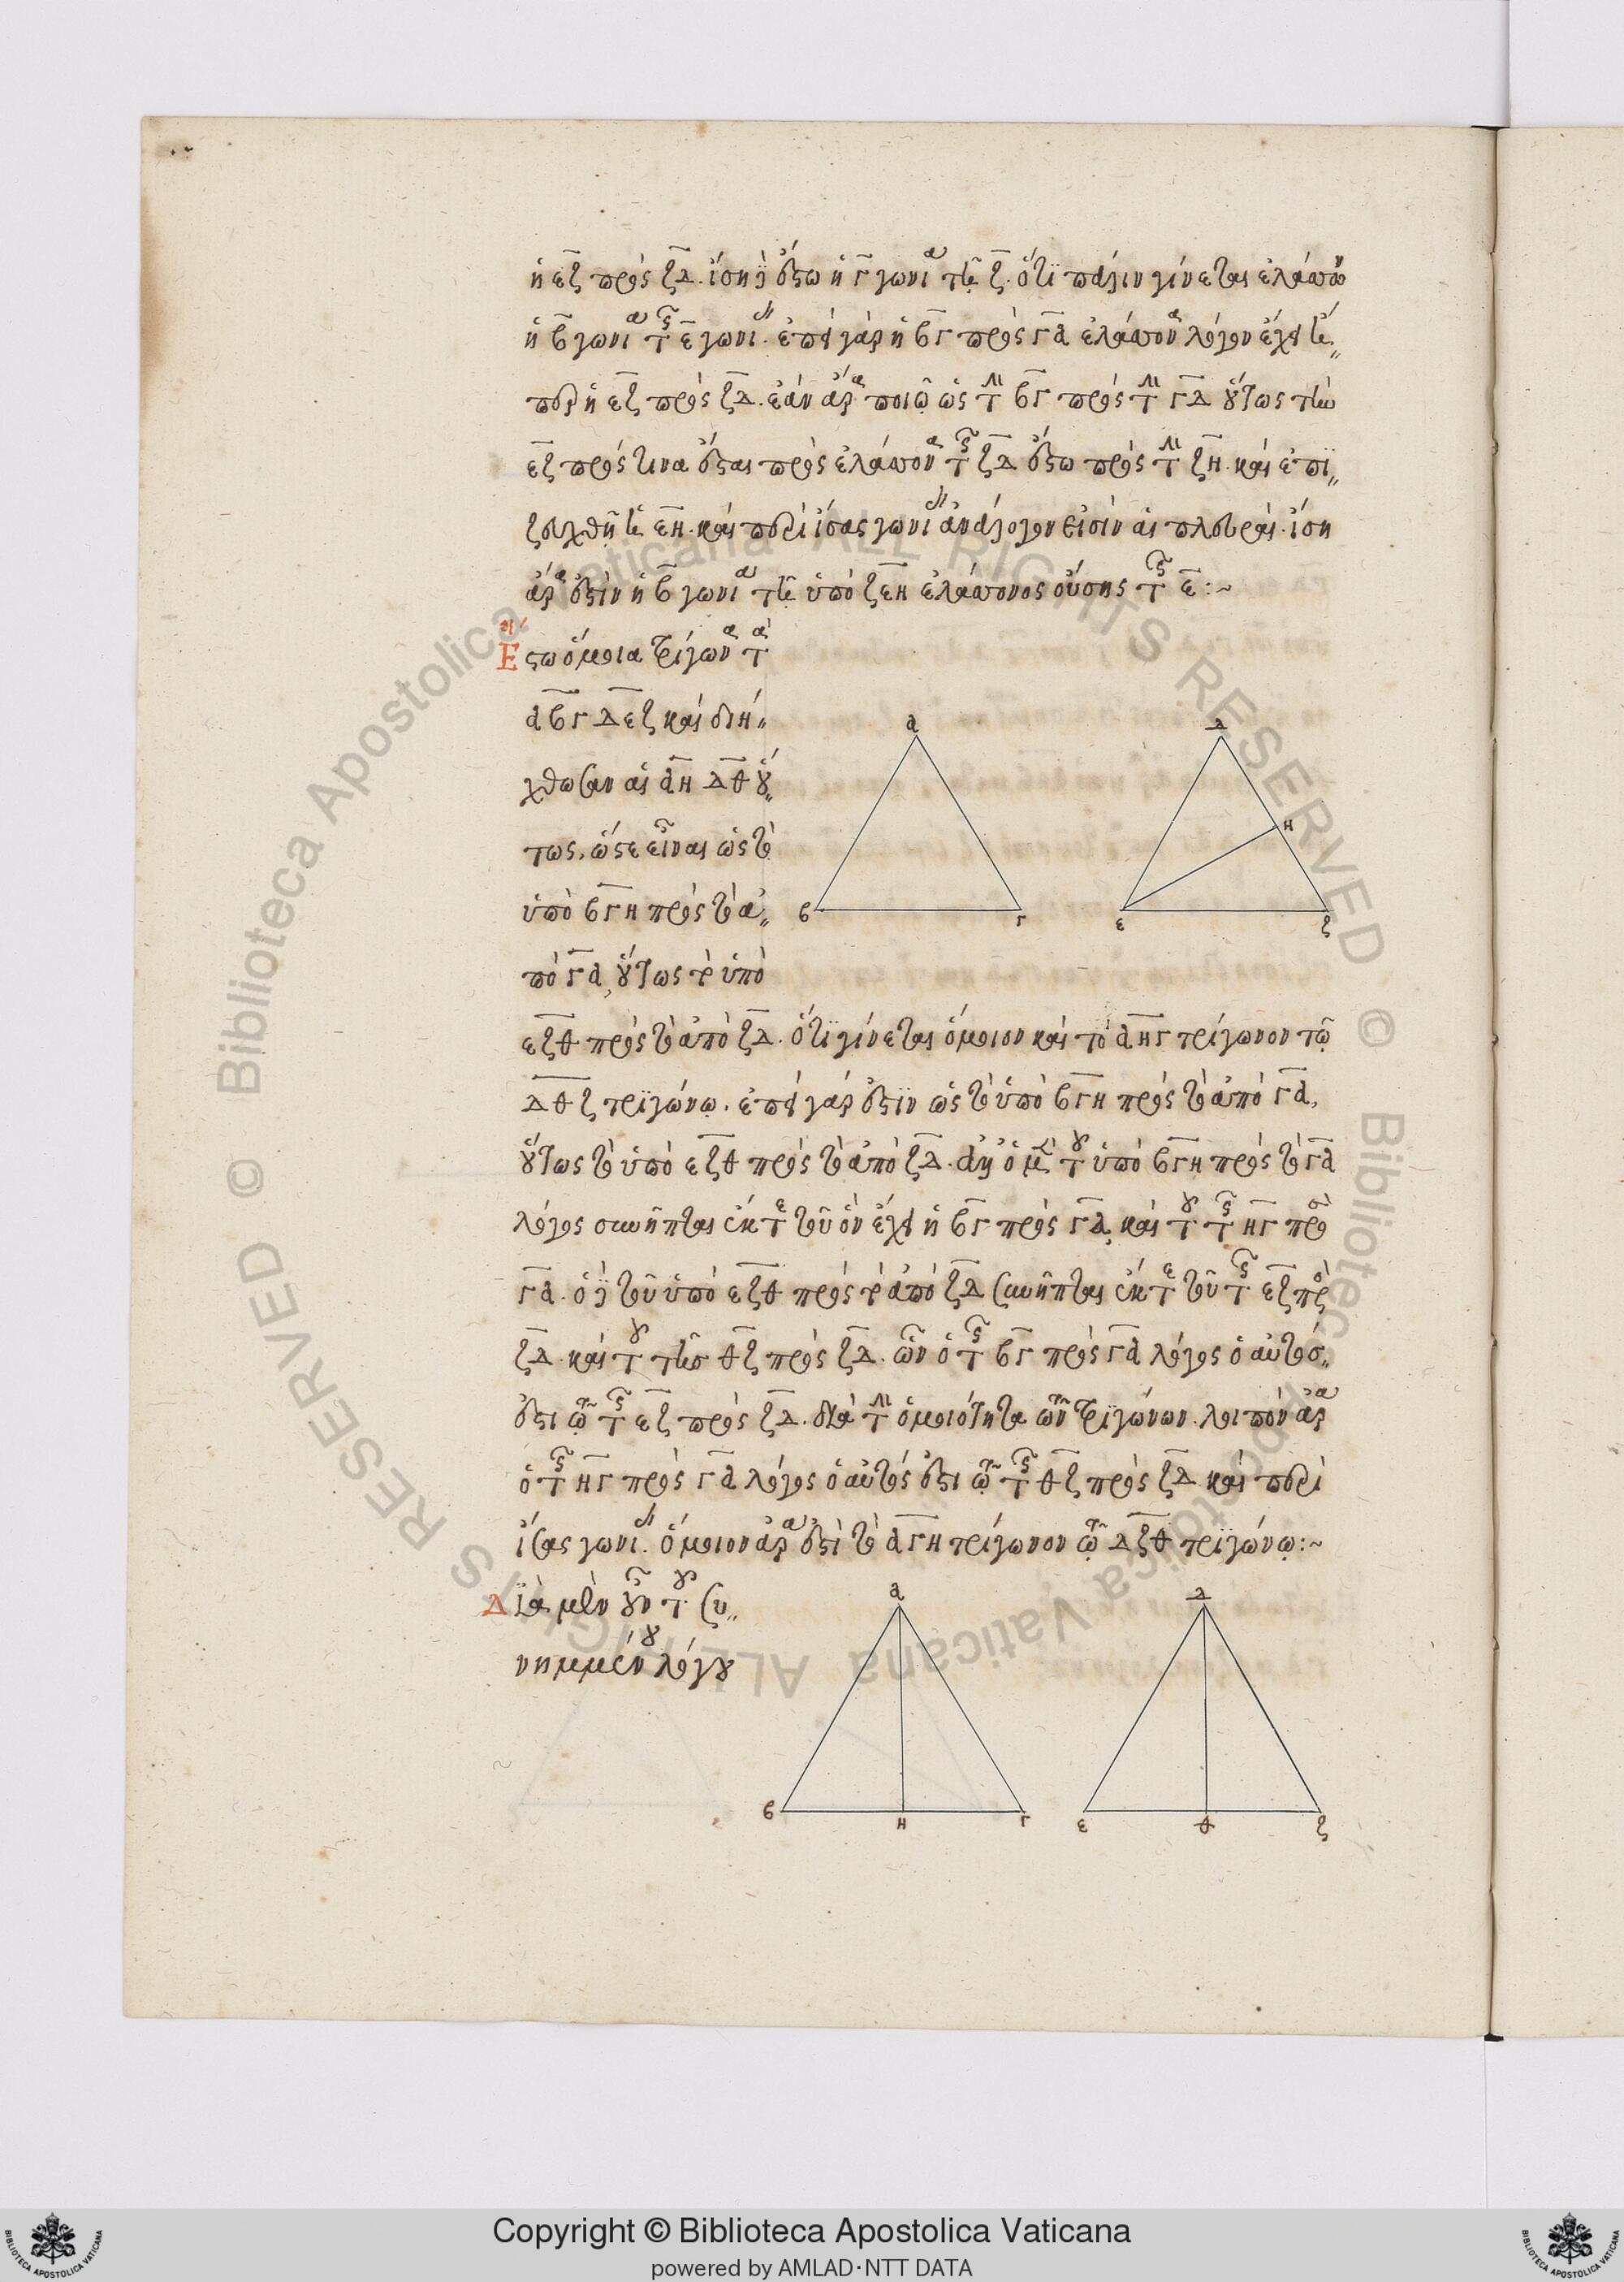 ἡ εζ πρὸς ζΔ. ἴση δὲ ἔστω ἡ Γ γωνία τῇ ζ. ὅτι πάλιν γίνεται ἐλάττων
ἡ β γωνία τῆς ε γωνίας. ἐπεὶ γὰρ ἡ βΓ πρὸς Γα ἐλάττονα λόγον ἔχει ἤ
περ ἡ εζ πρὸς ζΔ. ἐὰν ἄρα ποιῶ ὡς τὴν βΓ πρὸς τὴν ΓΔ οὕτως τὴν
εζ πρός τινα ἔσται πρὸς ἐλάττονα τῆς ζΔ ἔστω πρὸς τὴν ζΗ. καὶ ἐπι
ζευχθῇ ἡ εΗ. καὶ περὶ ἴσας γωνίας ἀνάλογον εἰσὶν αἱ πλευραί. ἴση
ἄρα ἐστὶν ἡ β γωνία τῇ ὑπὸ ζεΗ ἐλάττονος οὔσης τῆς ε:~
Εστω ὅμοια τρίγωνα τὰ
αβΓ Δεζ καὶ διή
χθωσαν αἱ αΗ Δθ οὕ
τως, ὥστε εἶναι ὡς τὸ
ὑπὸ βΓΗ πρὸς τὸ ἀ
πὸ Γα, οὕτως τὸ ὑπὸ
εζθ πρὸς τὸ ἀπὸ ζΔ. ὅτι γίνεται ὅμοιον καὶ τὸ αΗΓ τρίγωνον τῷ
Δθζ τριγώνῳ. ἐπεὶ γάρ ἐστιν ὡς τὸ ὑπὸ βΓΗ πρὸς τὸ ἀπὸ Γα,
οὕτως τὸ ὑπὸ εζθ πρὸς τὸ ἀπὸ ζΔ. ἀλλ' ὁ μὲν τοῦ ὑπὸ βΓΗ πρὸς τὸ Γα
λόγος συνῆπται ἐκ τε τοῦ ὃν ἔχει ἡ βΓ πρὸς Γα, καὶ τοῦ τῆς ΗΓ πρὸς
Γα. ὁ δὲ τοῦ ὑπὸ εζθ πρὸς τὸ ἀπὸ ζΔ συνῆπται ἐκ τε τοῦ τῆς εζ πρὸς
ζΔ. καὶ τοῦ τῆς θζ πρὸς ζΔ. ὧν ὁ τῆς βΓ πρὸς Γα λόγος ὁ αὐτός
ἐστι τῷ τῆς εζ πρὸς ζΔ. διὰ τὴν ὁμοιότητα τῶν τριγώνων. λοιπὸν ἄρα
ὁ τῆς ΗΓ πρὸς Γα λόγος ὁ αὐτός ἐστι τῷ τῆς θζ πρὸς ζΔ. καὶ περὶ
ἴσας γωνίας. ὅμοιον ἄρα ἐστὶ τὸ αΓΗ τρίγωνον τῷ Δζθ τριγώνῳ:~
Διὰ μὲν οὖν τοῦ συ
νημμένου λόγου
α
Δ
Η
β
Γ
ε
ζ
α
Δ
β
Η
Γ
ε
θ
ζ
© Biblioteca Apostolica Vaticana ALL RIGHTS RESERVED
© Biblioteca Apostolica Vaticana ALL RIGHTS RESERVED
Copyright © Biblioteca Apostolica Vaticana
powered by AMLAD·NTT DATA
BIBLIOTECA APOSTOLICA VATICANA
BIBLIOTECA APOSTOLICA VATICANA